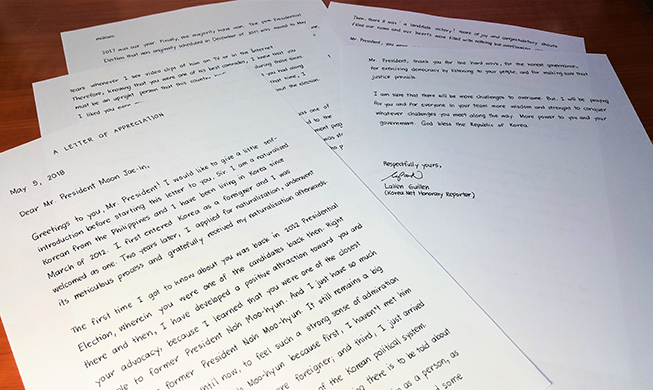 A LETTER OF APPRECIATION
May 5, 2018
Dear Mr. President Moon Jae-in,
Greetings to you, Mr. President! I would like to give a little self-
introduction before starting this letter to you. Sir, I am a naturalized
Korean from the Philippines and I have been living in Korea since
March of 2012. I first entered Korea as a foreigner and I was
welcomed as one. Two years later, I applied for naturalization, underwent
its meticulous process and gratefully received my naturalization afterwards.
The first time I got to know about you was back in 2012 Presidential
Election, wherein you were one of the candidates back then. Right
there and then, I have developed a positive attraction toward you and
your advocacy, because I learned that you were one of the closest
to former President Noh Moo-hyun. And I just have so much
former President Noh Moo-hyun. It still remains a big
until now, to feel such a strong sense of admiration
Moo-hyun because first, I haven't met him
foreigner; and third, I just arrived
of the Korean political system.
there is to be told about
as a person, as
and some
2017 was our year. Finally, the majority have won. The 19th Presidential
Election that was originally scheduled in December of 2017 was moved to May
tears whenever I see video clips of him on TV or in the Internet.
Therefore, knowing that you were one of his best comrades, I knew that you
must be an upright person that this country
I liked you even
during those times
you had along
that time, I
the election
was one of
to the
Then, there it was - a landslide victory! Tears of joy and congratulatory shouts
filled our home and our hearts were filled with
Mr. President, you
Mr. President, thank you for the hard work, for the Korean governance,
for exhibiting democracy by listening to your people, and for making sure that
justice prevails.
I am sure that there will be more challenges to overcome. But, I will be praying
for you and for everyone in your team more wisdom and strength to conquer
whatever challenges you meet along the way. More power to you and your
government. God bless the Republic of Korea.
Respectfully yours,
Lalien Guillen
(Korea Net Honorary Reporter)